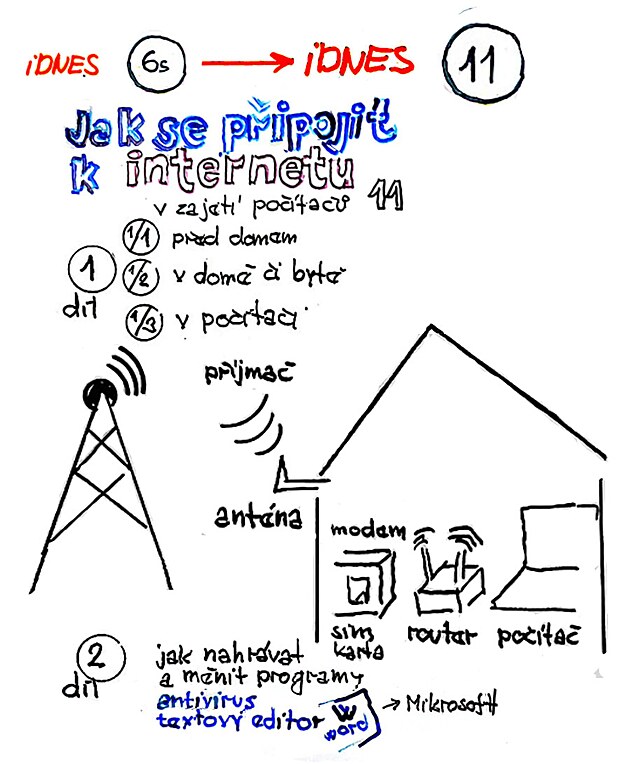 iDNES 6s → iDNES 11
Jak se připojit
k internetu
v zajetí počítačů 11
1 díl
1/1 před domem
1/2 v domě či bytě
1/3 v počítači
přijmač
anténa
modem
sim karta
router
počítač
2 díl
jak nahrávat
a měnit programy
antivirus
textový editor W word → Mikrosoft